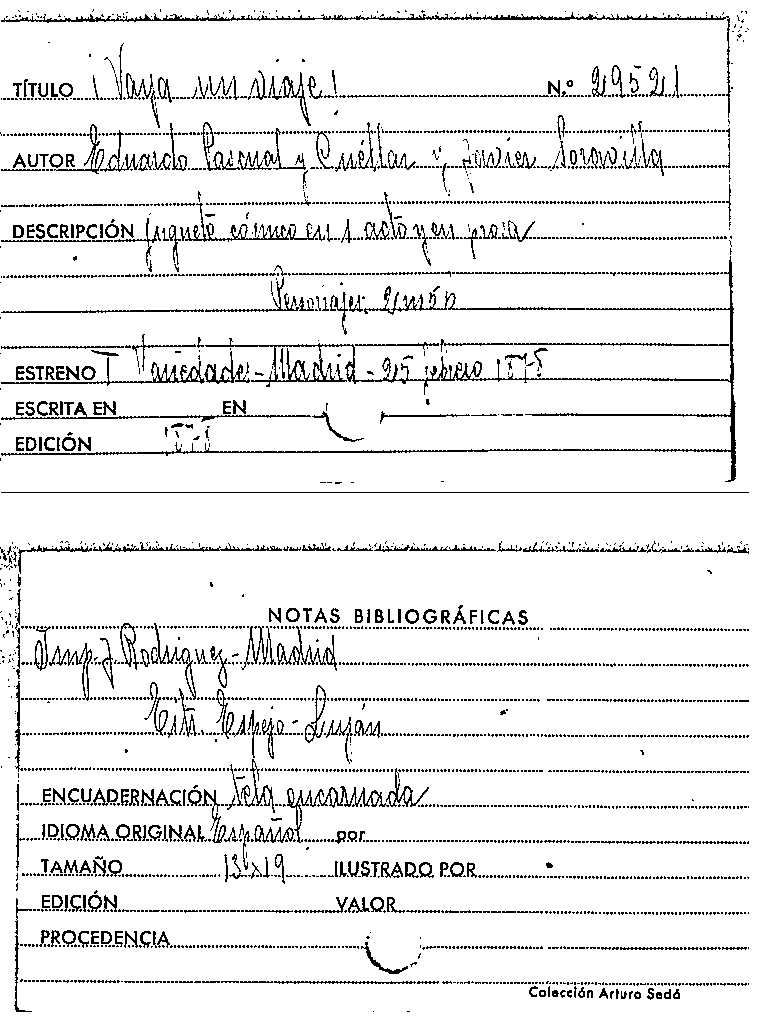 TÍTULO ¡Vaya un viaje! N.º 29521
AUTOR Eduardo Pascual y Cuéllar y Javier Soravilla
DESCRIPCIÓN Juguete cómico en 1 acto y en prosa
Personajes. 2 m 5 h
ESTRENO T Variedades-Madrid-25 febrero 1878
ESCRITA EN EN
EDICIÓN 1878
NOTAS BIBLIOGRÁFICAS
Imp. J Rodriguez-Madrid
Espejo-Luján
ENCUADERNACIÓN tela encarnada
IDIOMA ORIGINAL Español por
TAMAÑO 13x19 ILUSTRADO POR
EDICIÓN VALOR
PROCEDENCIA
Colección Arturo Sedó